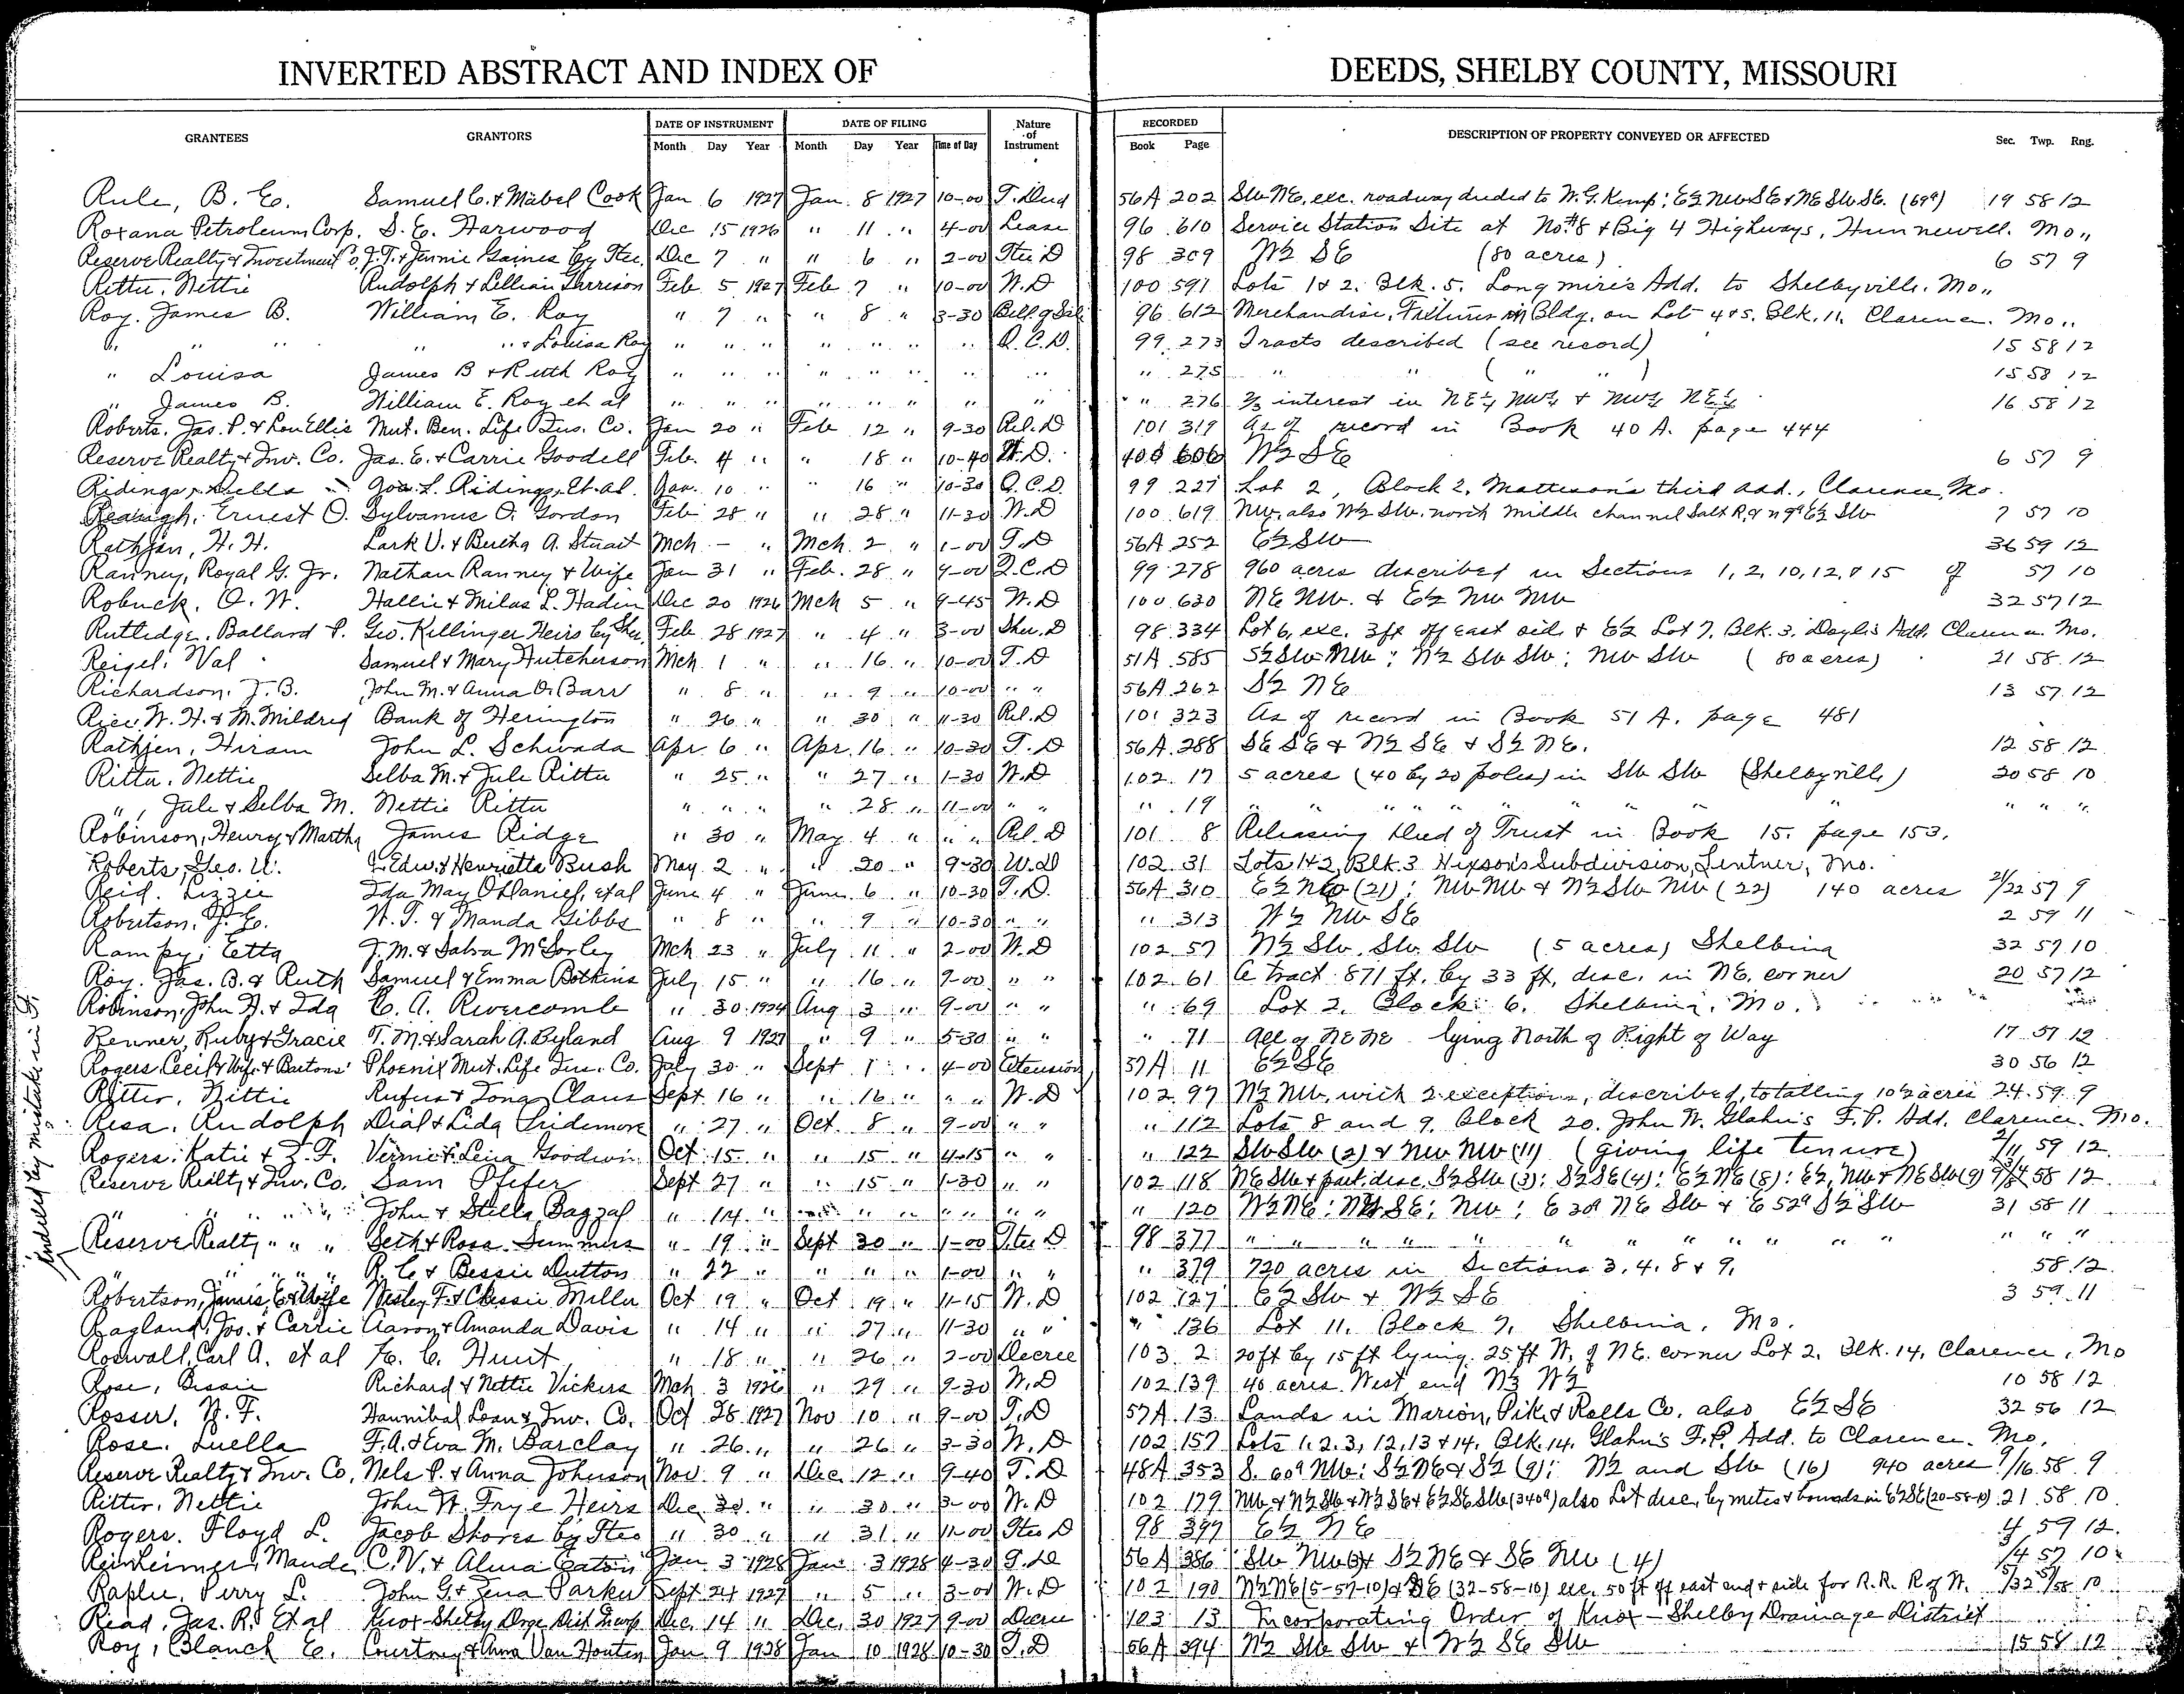 INVERTED ABSTRACT AND INDEX OF DEEDS, SHELBY COUNTY, MISSOURI
GRANTEES GRANTORS DATE OF INSTRUMENT DATE OF FILING Nature of Instrument RECORDED DESCRIPTION OF PROPERTY CONVEYED OR AFFECTED Sec. Twp. Rng.
Month Day Year Month Day Year Time of Day Book Page
Rule, B. E. Samuel C. & Mabel Cook Jan 6 1927 Jan. 8 1927 10-00 T. Deed 56A 202 SW NE, exc. roadway deeded to W. G. Kemp; E½ NW SE & NE SW SE. (69ᵃ) 19 58 12
Roxana Petroleum Corp. S. E. Harwood Dec 15 1926 " 11 " 4-00 Lease 96 610 Service Station Site at No. #8 & Big 4 Highways, Hunnewell. Mo.,
Reserve Realty & Investment Co. J. T. & Jennie Gaines by Stee. Dec 7 " " 6 " 2-00 Stee D 98 309 W½ SE (80 acres) 6 57 9
Ritter, Nettie Rudolph & Lillian Garrison Feb 5 1927 Feb 7 " 10-00 W. D 100 591 Lots 1 & 2. Blk. 5. Longmire's Add. to Shelbyville. Mo.,
Roy. James B. William E. Roy " 7 " " 8 " 3-30 Bill of Sale 96 612 Merchandise, Fixtures in Bldg. on Lot 4 & 5. Blk. 11. Clarence. Mo.,
" " " " " & Louisa Roy " " " " " " " Q. C. D. 99 273 Tracts described (see record) 15 58 12
" Louisa James B & Ruth Roy " " " " " " " " " 275 " " ( " " ) 15 58 12
" James B. William E. Roy et al " " " " " " " " " 276 ⅔ interest in NE¼ NW¼ & NW¼ NE¼ 16 58 12
Roberts. Jas. P. & Lou Ellis Mut. Ben. Life Ins. Co. Jan 20 " Feb 12 " 9-30 Rel. D 101 319 as of record in Book 40 A. page 444
Reserve Realty & Inv. Co. Jas. E. & Carrie Goodell Feb. 4 " " 18 " 10-40 W. D. 100 606 W½ SE 6 57 9
Ridings, Della Geo. L. Ridings, Et al. Jan. 10 " " 16 " 10-30 Q. C. D. 99 227 Lot 2, Block 2, Matteson's third add., Clarence, Mo.
Reaugh, Ernest O. Sylvanus O. Gordon Feb 28 " " 28 " 11-30 W. D 100 619 NW. also W½ SW. north middle channel Salt R. & n 9ᵃ E½ SW 7 57 10
Rathjen, H. H. Lark V. & Bertha A. Stuart Mch - " Mch 2 " 1-00 T. D 56A 252 E½ SW 36 59 12
Ranney, Royal G. Jr. Nathan Ranney & Wife Jan 31 " Feb. 28 " 4-00 Q. C. D 99 278 960 acres described in Sections 1, 2, 10, 12, & 15 of 57 10
Robuck, O. W. Hallie & Milas L. Hadin Dec 20 1926 Mch 5 " 9-45 W. D 100 630 NE NW. & E½ NW NW 32 57 12
Rutledge, Ballard P. Geo. Killinger Heirs by Sher. Feb 28 1927 " 4 " 3-00 Sher. D 98 334 Lot 6, exc. 3 ft off east side & E½ Lot 7. Blk. 3, Doyle's Add. Clarence. Mo.
Reigel. Val Samuel & Mary Hutcherson Mch 1 " " 16 " 10-00 T. D 51A 585 S½ SW NW; N½ SW SW; NW SW (80 acres) 21 58 12
Richardson. J. B. John M. & Anna D. Barr " 8 " " 9 " 10-00 " " 56A 262 S½ NE 13 57 12
Rice, W. H. & M. Mildred Bank of Herington " 26 " " 30 " 11-30 Rel. D 101 323 As of record in Book 51 A. page 481
Rathjen, Hiram John L. Schwada Apr 6 " Apr. 16 " 10-30 T. D 56A 288 SE SE & N½ SE & S½ NE. 12 58 12
Ritter. Nettie Selba M. & Jule Ritter " 25 " " 27 " 1-30 W. D 102 17 5 acres (40 by 20 poles) in SW SW (Shelbyville) 20 58 10
" , Jule & Selba M. Nettie Ritter " " " " 28 " 11-00 " " " 19 " " " " " " " " " " " "
Robinson, Henry & Martha James Ridge " 30 " May 4 " " " Rel. D 101 8 Releasing Deed of Trust in Book 15. page 153.
Roberts, Geo. W. Edw. & Henrietta Bush May 2 " " 20 " 9-30 W. D 102 31 Lots 1 & 2, Blk. 3 Hixson's Subdivision, Lentner, Mo.
Reid. Lizzie Ida May O'Daniel, et al June 4 " June 6 " 10-30 T. D. 56A 310 E½ NE (21); NW NW & N½ SW NW (22) 140 acres 21/22 57 9
Robertson, J. E. W. T. & Manda Gibbs " 8 " " 9 " 10-30 " " " 313 W½ NW SE 2 59 11
Rampy, Etta J. M. & Salva McSorley Mch 23 " July 11 " 2-00 W. D 102 57 N½ SW. SW. SW (5 acres) Shelbina 32 57 10
Roy. Jas. B. & Ruth Samuel & Emma Botkins July 15 " " 16 " 9-00 " " 102 61 A tract 871 ft. by 33 ft. desc. in NE. corner 20 57 12
Robinson, John H. & Ida C. A. Rivercomb " 30 1924 Aug 3 " 9-00 " " " 69 Lot 2. Block 6. Shelbina, Mo.
Renner, Ruby & Gracie T. M. & Sarah A. Byland Aug 9 1927 " 9 " 5-30 " " " 71 All of NE NE lying North of Right of Way 17 57 12
Rogers, Cecil & Wife & Burtons' Phoenix Mut. Life Ins. Co. July 30 " Sept 1 " 4-00 Extension 57A 11 E½ SE 30 56 12
Ritter, Nettie Rufus & Zona Claus Sept. 16 " " 16 " " " W. D 102 97 N½ NW. with 2 exceptions, described, totalling 10½ acres 24 59 9
Resa. Rudolph Dial & Lida Pridemore " 27 " Oct. 8 " 9-00 " " " 112 Lots 8 and 9. Block 20. John W. Glahn's F. P. Add. Clarence. Mo.
Rogers. Katie & Z. F. Vernie & Lena Goodwin Oct 15 " " 15 " 4-15 " " " 122 SW SW (2) & NW NW (11) (giving life tenure) 2/11 59 12
Reserve Realty & Inv. Co. Sam Pfifer Sept 27 " " 15 " 1-30 " " 102 118 NE SW & part. desc. S½ SW (3); S½ SE (4); E½ NE (8); E½, NW & NE SW (9) 58 12
" " " " John & Stella Bazzal " 14 " " " " " " " " " 120 N½ NE; SE; NW; E 30ᵃ NE SW & E 52ᵃ S½ SW 31 58 11
Indexed by mistake in
Reserve Realty " " " Seth & Rosa Summers " 19 " Sept 30 " 1-00 Stee D 98 377 " " " " " " " " " " " "
" " " " R. C. & Bessie Dutton " 22 " " " " 1-00 " " " 379 720 acres in Sections 3, 4, 8 & 9. 58 12
Robertson, James E. & Wife Wesley F. & Chessie Miller Oct 19 " Oct 19 " 11-15 W. D 102 127 E½ SW & W½ SE 3 59 11
Ragland, Jos. & Carrie Aaron & Amanda Davis " 14 " " 27 " 11-30 " " " 136 Lot 11. Block 7. Shelbina, Mo.
Roswall, Carl A. et al H. C. Hunt " 18 " " 26 " 2-00 Decree 103 2 20 ft by 15 ft lying 25 ft W. of NE. corner Lot 2. Blk. 14. Clarence, Mo
Rose, Bessie Richard & Nettie Vickers Mch 3 1926 " 29 " 9-30 W. D 102 139 40 acres West end N½ N½ 10 58 12
Rosser, W. F. Hannibal Loan & Inv. Co. Oct 28 1927 Nov 10 " 9-00 T. D 57A 13 Lands in Marion, Pike & Ralls Co. also E½ SE 32 56 12
Rose. Luella F. A. & Eva M. Barclay " 26 " " 26 " 3-30 W. D 102 157 Lots 1. 2. 3, 12, 13 & 14. Blk. 14. Glahn's F. P. Add. to Clarence. Mo.
Reserve Realty & Inv. Co. Nels P. & Anna Johnson Nov. 9 " Dec. 12 " 9-40 T. D 48A 353 S. 60ᵃ NW; S½ NE & S½ (9); N½ and SW (16) 940 acres 9/16 58 9
Ritter, Nettie John W. Frye Heirs Dec 30 " " 30 " 3-00 W. D 102 179 NW & N½ SW & W½ SE & E½ SE SW (340ᵃ) also Lot desc. by metes & bounds in E½ SE (20-58-10) 21 58 10
Rogers. Floyd L. Jacob Shores by Stee " 30 " " 31 " 11-00 Stee D 98 397 E½ NE 4 59 12
Reinheimer, Maude C. V. & Alma Eaton Jan 3 1928 Jan 3 1928 4-30 T. D 56A 386 SW NW & S½ NE & SE NW (4) 57 10
Raplee, Perry L. John G. & Zena Parker Sept 24 1927 " 5 " 3-00 W. D 102 190 N½ NE (5-57-10) & SE (32-58-10) exc. 50 ft off east end & side for R. R. R of W. 5/32 57/58 10
Read, Jas. R. Et al Knox-Shelby Drge Dist Incorp Dec. 14 " Dec. 30 1927 9-00 Decree 103 13 Incorporating Order of Knox-Shelby Drainage District
Roy, Blanch E. Courtney & Anna Van Houten Jan 9 1928 Jan 10 1928 10-30 T. D 56A 394 N½ SW SW & W½ SE SW 15 58 12